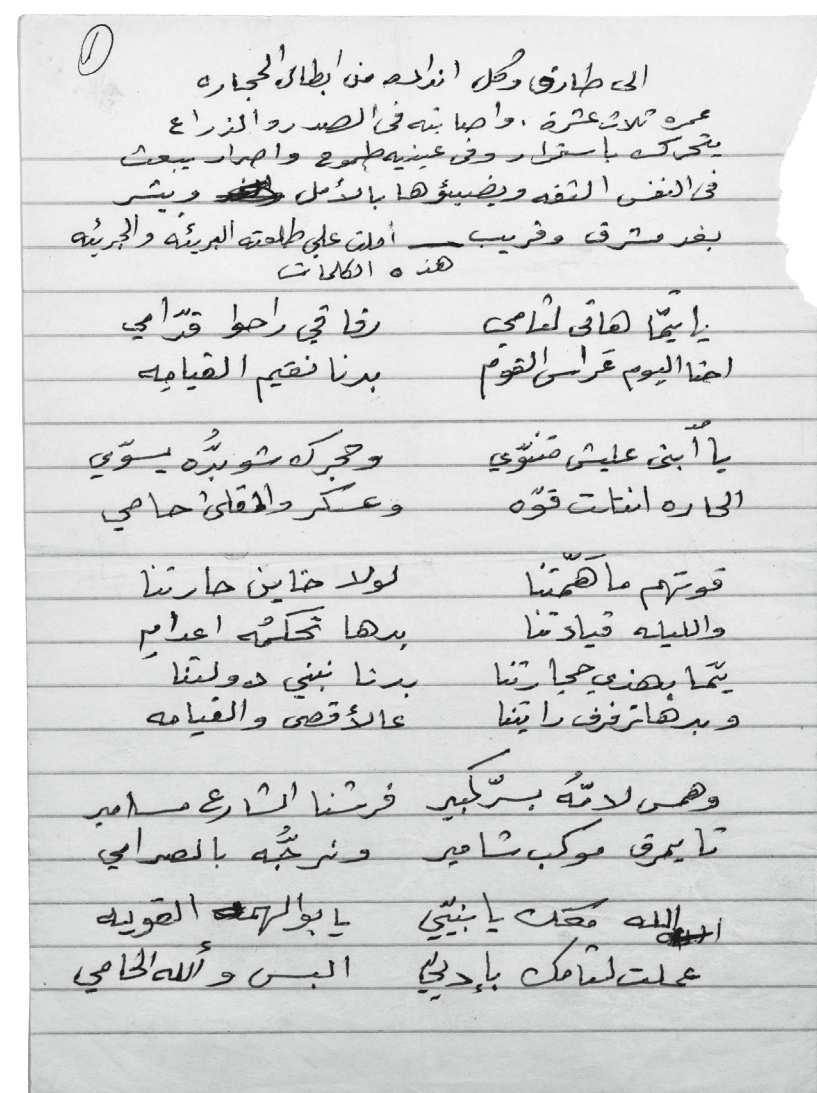 ١
الى طارق وكل انداده من ابطال الحجاره
عمره ثلاث عشرة . واصابته فى الصدر والذراع
يتحرك باستمرار وفى عينيه طموح واصرار يبعث
فى النفس الثقه ويضيئوها بالأمل ويبشر
بغد مشرق وقريب — أملت علي طلعته البريئه والجريئه
هذه الكلمات
يا يمّا هاتى لثامي رفاقي راحوا قدّامي
احنا اليوم عراس القوم بدنا نقيم القيامه
يا اُبنى عليش متنوّي وحجرك شو بدُّه يسوّي
الحاره انتلت قوّه وعسكر والمقلىْ حامي
قوتهم ما هَمّتنا لولا خاين حارتنا
والليله قيادتنا بدها تحكمُه اعدامِ
يمّا بهذي حجارتنا بدنا نبني دولتنا
وبدها ترفرف رايتنا عالأقصى والقيامه
وهمس لامّهُ بسرّ كبير فرشنا الشارع مسامير
تا يمرق موكب شامير ونرجُّه بالصرامي
الله معك يا بنيّي يا بو الهمه القويه
عملت لثامك بإديّي البس وألله الحامي